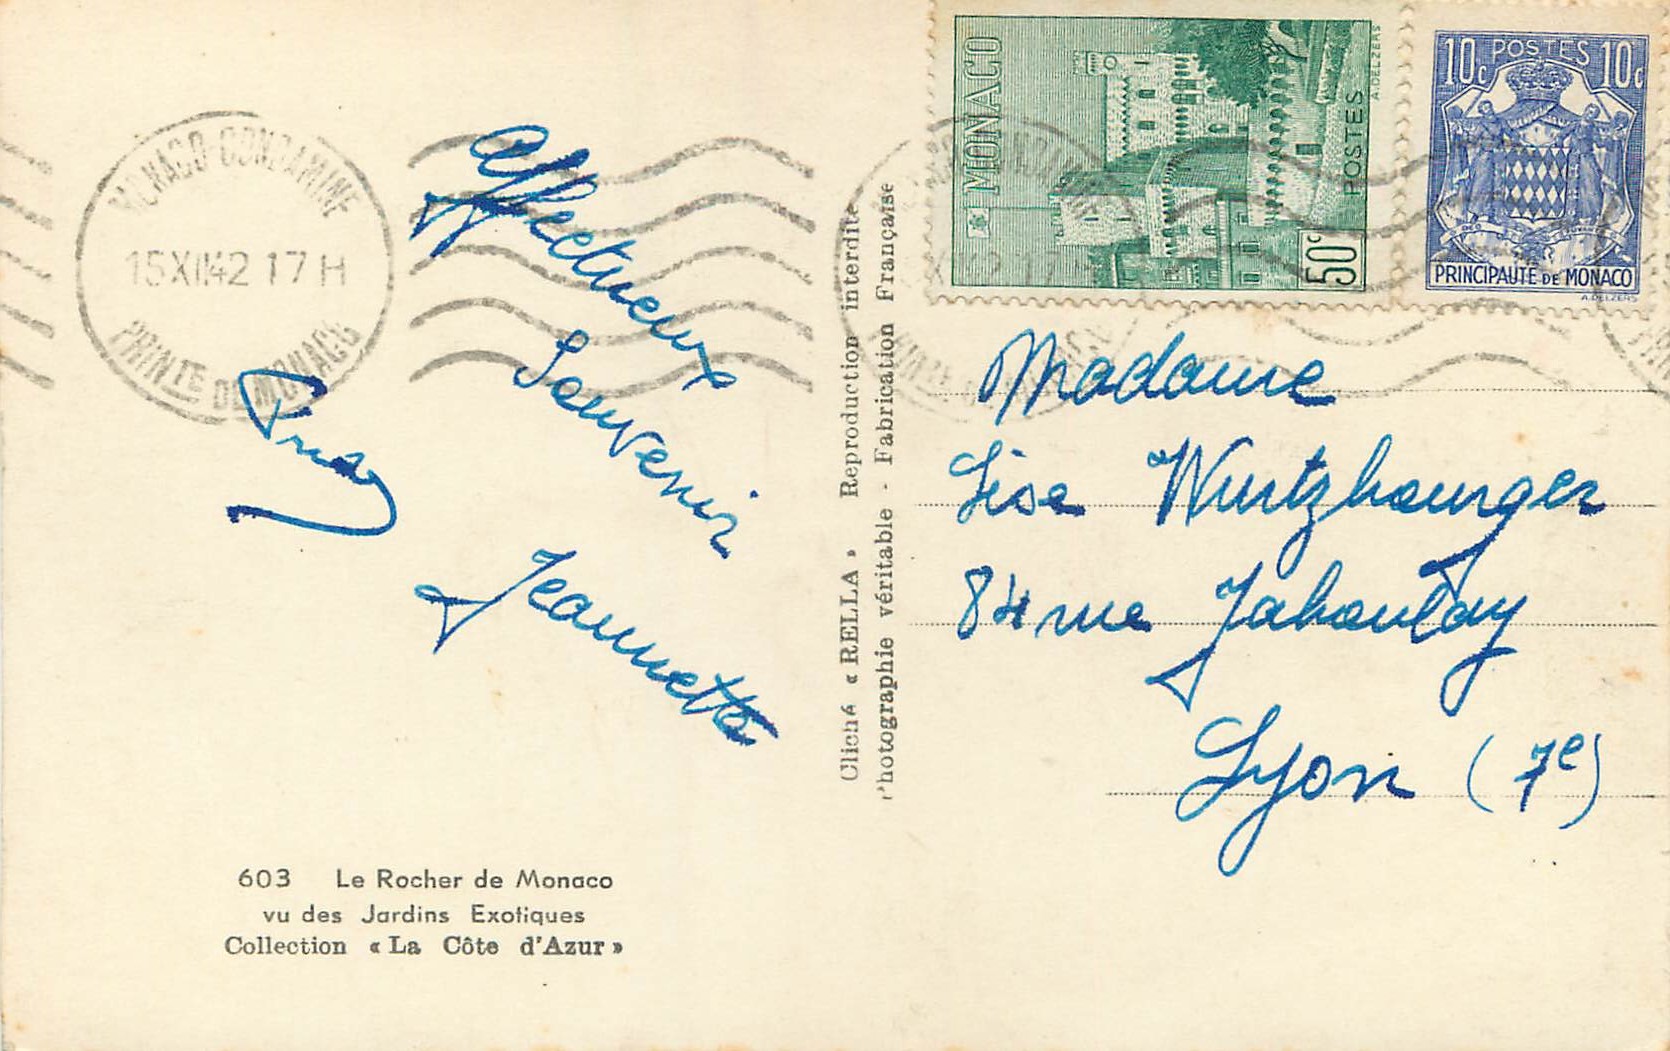 MONACO-CONDAMINE
15 XII 42 17 H
PRINTE DE MONACO
Affectueux
Souvenir
Jeannette
603 Le Rocher de Monaco
vu des Jardins Exotiques
Collection « La Côte d'Azur »
Cliché « RELLA » Reproduction interdite
Photographie véritable - Fabrication Française
MONACO
POSTES
50c
A.DELZERS
10c POSTES 10c
PRINCIPAUTÉ DE MONACO
A.DELZERS
Madame
Lise Wurtzbourger
84 rue Jaboulay
Lyon (7e)